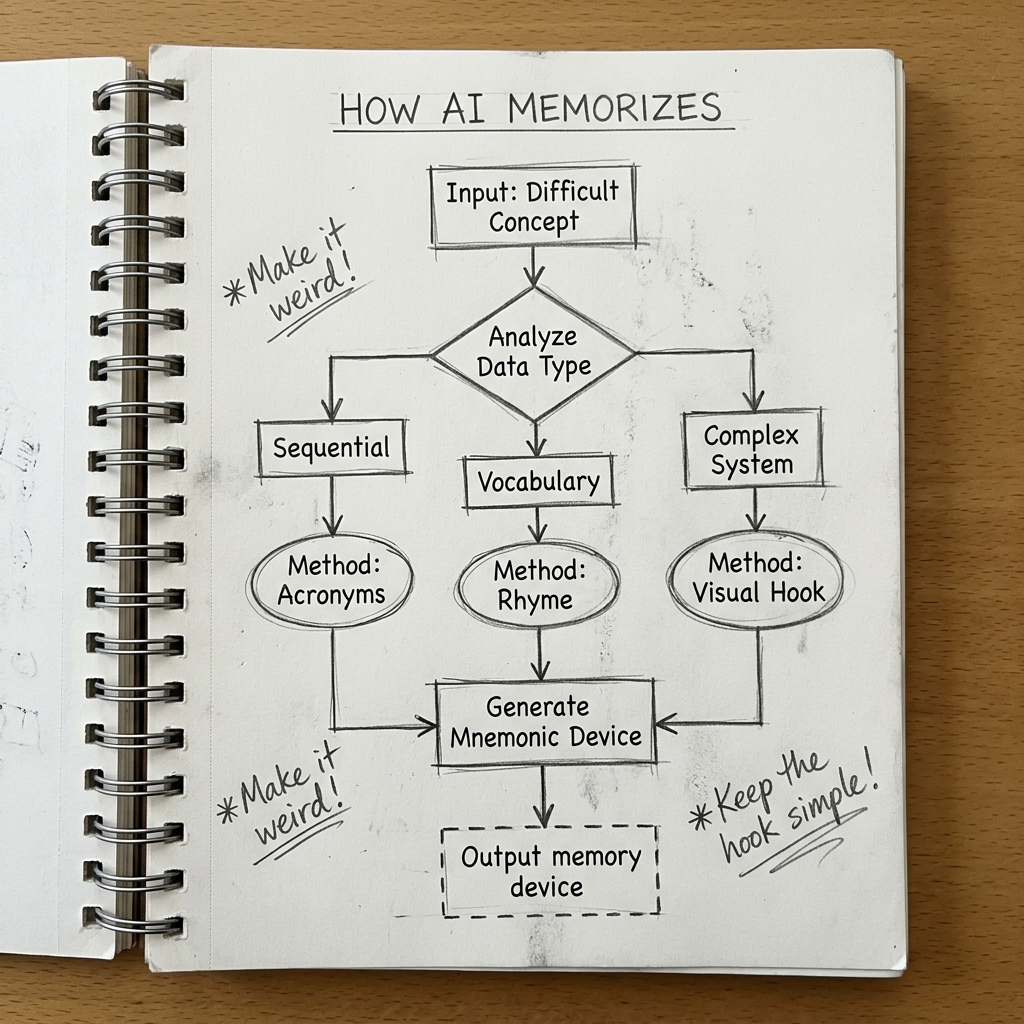 HOW AI MEMORIZES
Input: Difficult
Concept
*Make it
weird!
Analyze
Data Type
Sequential
Vocabulary
Complex
System
Method:
Acronyms
Method:
Rhyme
Method:
Visual Hook
Generate
Mnemonic Device
*Make it
weird!
*Keep the
hook simple!
Output memory
device